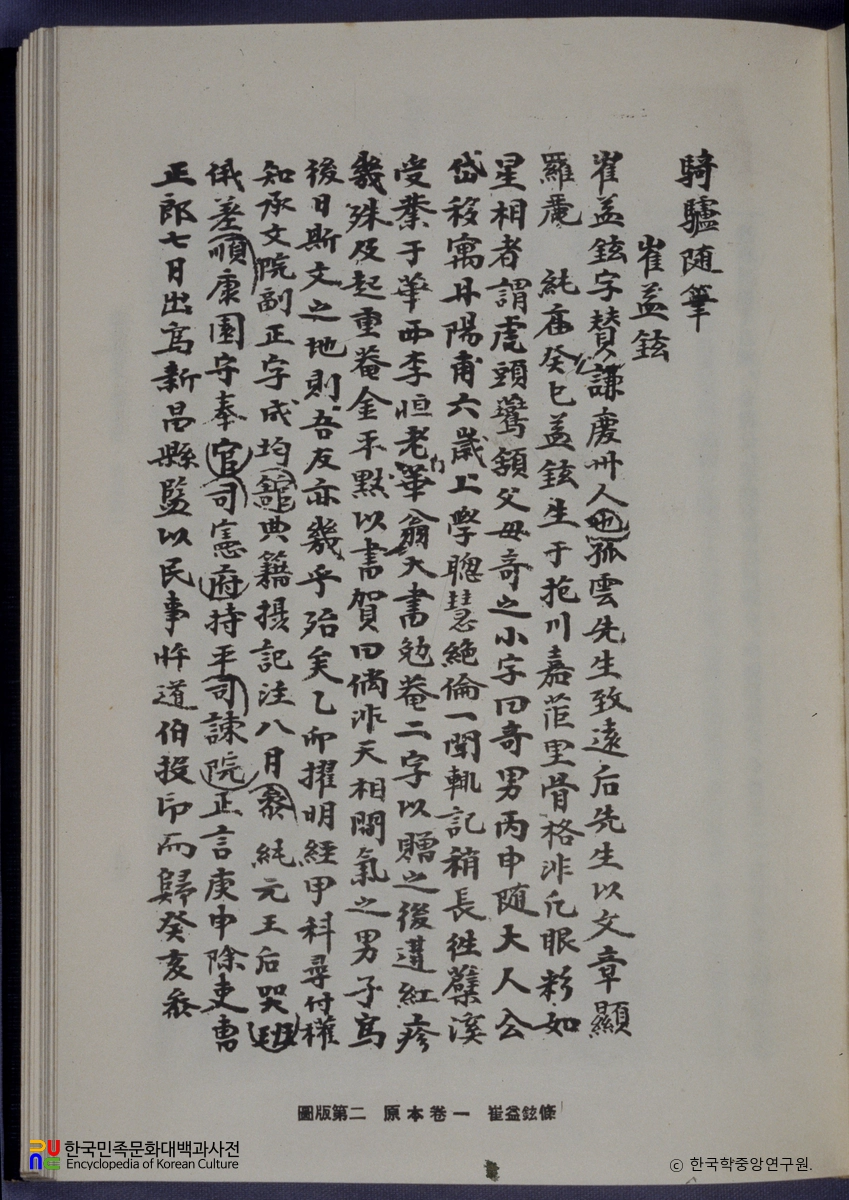 騎驢随筆
崔益鉉
崔益鉉字賛謙慶州人也孤雲先生致遠后先生以文章顯
羅麗 純廟癸巳益鉉生于抱川嘉茝里骨格非凡眼彩如
星相者謂虎頭鷰頷父母奇之小字曰奇男丙申随大人公
岱移寓丹陽甫六歲上學聰慧絶倫一聞輒記稍長徃蘗溪
受業于華西李恒老華翁大書勉菴二字以贈之後遘紅疹
幾殊及起重菴金平黙以書賀曰倘非天相閒氣之男子寫
後日斯文之地則吾友亦幾乎殆矣乙卯擢明經甲科尋付權
知承文院副正字成均館典籍攝記注八月 純元王后哭班
俄差順康園守奉官司憲府持平司諫院正言庚申除吏曹
正郎七月出爲新昌縣監以民事忤道伯投印而歸癸亥
圖版第二 原本卷一 崔益鉉條
한국민족문화대백과사전
Encyclopedia of Korean Culture
ⓒ 한국학중앙연구원.